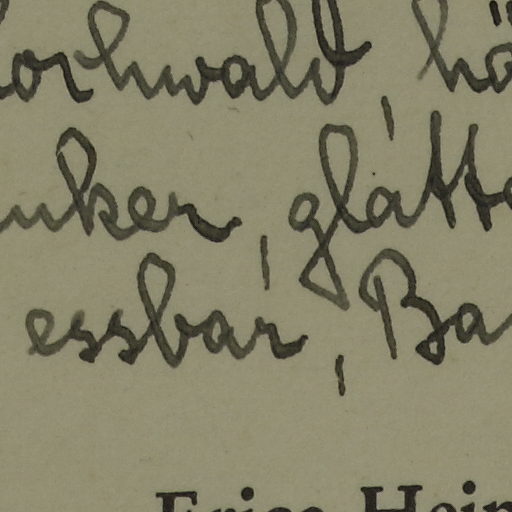 orhwald, hö
nker, glatte
essbar, Ba
Erica Hein